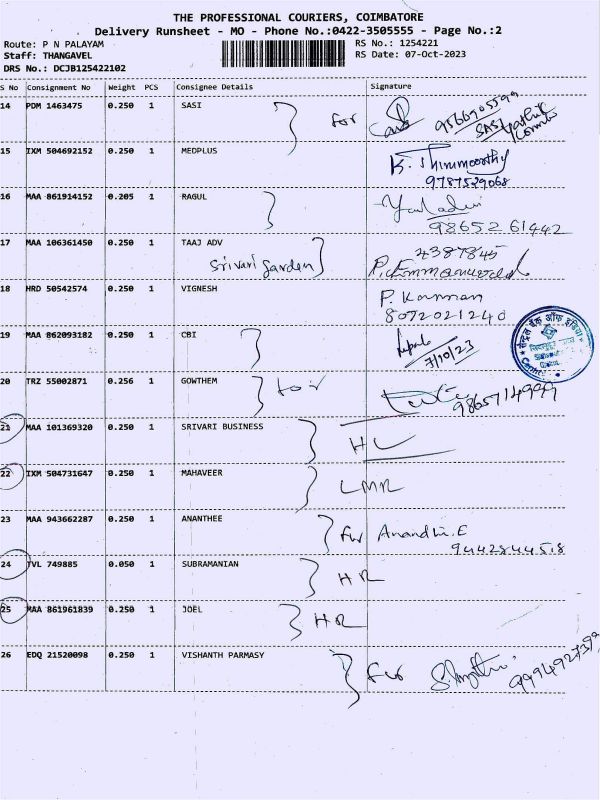 THE PROFESSIONAL COURIERS, COIMBATORE
Delivery Runsheet - MO - Phone No.:0422-3505555 - Page No.:2
Route: P N PALAYAM
RS No.: 1254221
Staff: THANGAVEL
RS Date: 07-Oct-2023
DRS No.: DCJB125422102
S No Consignment No Weight PCS Consignee Details Signature
14 PDM 1463475 0.250 1 SASI
for 9566905599
SASI
15 IXM 504692152 0.250 1 MEDPLUS
K. Thirumoorthy
9787529068
16 MAA 861914152 0.205 1 RAGUL
98652 61442
17 MAA 106361450 0.250 1 TAAJ ADV
Srivari Garden
4387845
18 HRD 50542574 0.250 1 VIGNESH
P. Kannan
8072021240
19 MAA 862093182 0.250 1 CBI
7/10/23
20 TRZ 55002871 0.256 1 GOWTHEM
for
9865714999
21 MAA 101369320 0.250 1 SRIVARI BUSINESS
HL
22 IXM 504731647 0.250 1 MAHAVEER
LMR
23 MAA 943662287 0.250 1 ANANTHEE
for Anandhi.E
9442844518
24 TVL 749885 0.050 1 SUBRAMANIAN
HR
25 MAA 861961839 0.250 1 JOEL
HR
26 EDQ 21520098 0.250 1 VISHANTH PARMASY
for